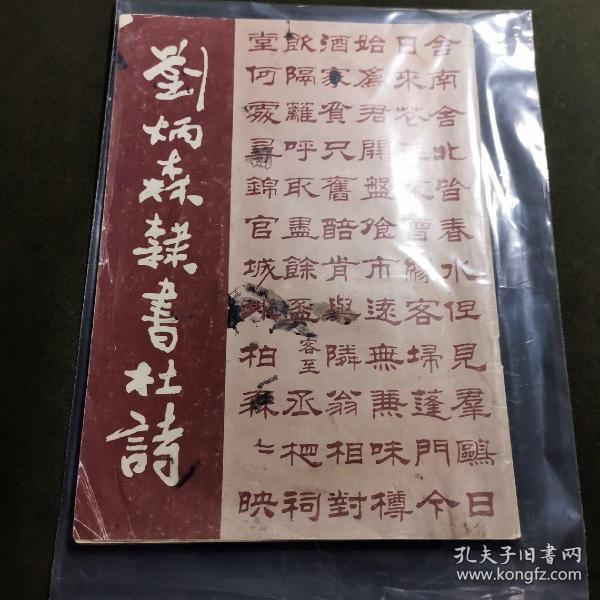 劉炳森隸書杜詩
舍南舍北皆春水但見羣鷗日
日來花徑不曾緣客掃蓬門今
始爲君開盤飧市遠無兼味樽
酒家貧只舊醅肯與隣翁相對
飲隔籬呼取盡餘盃 客至 丞相祠
堂何處尋錦官城外柏森〻映
孔夫子旧书网
www.kongfz.com